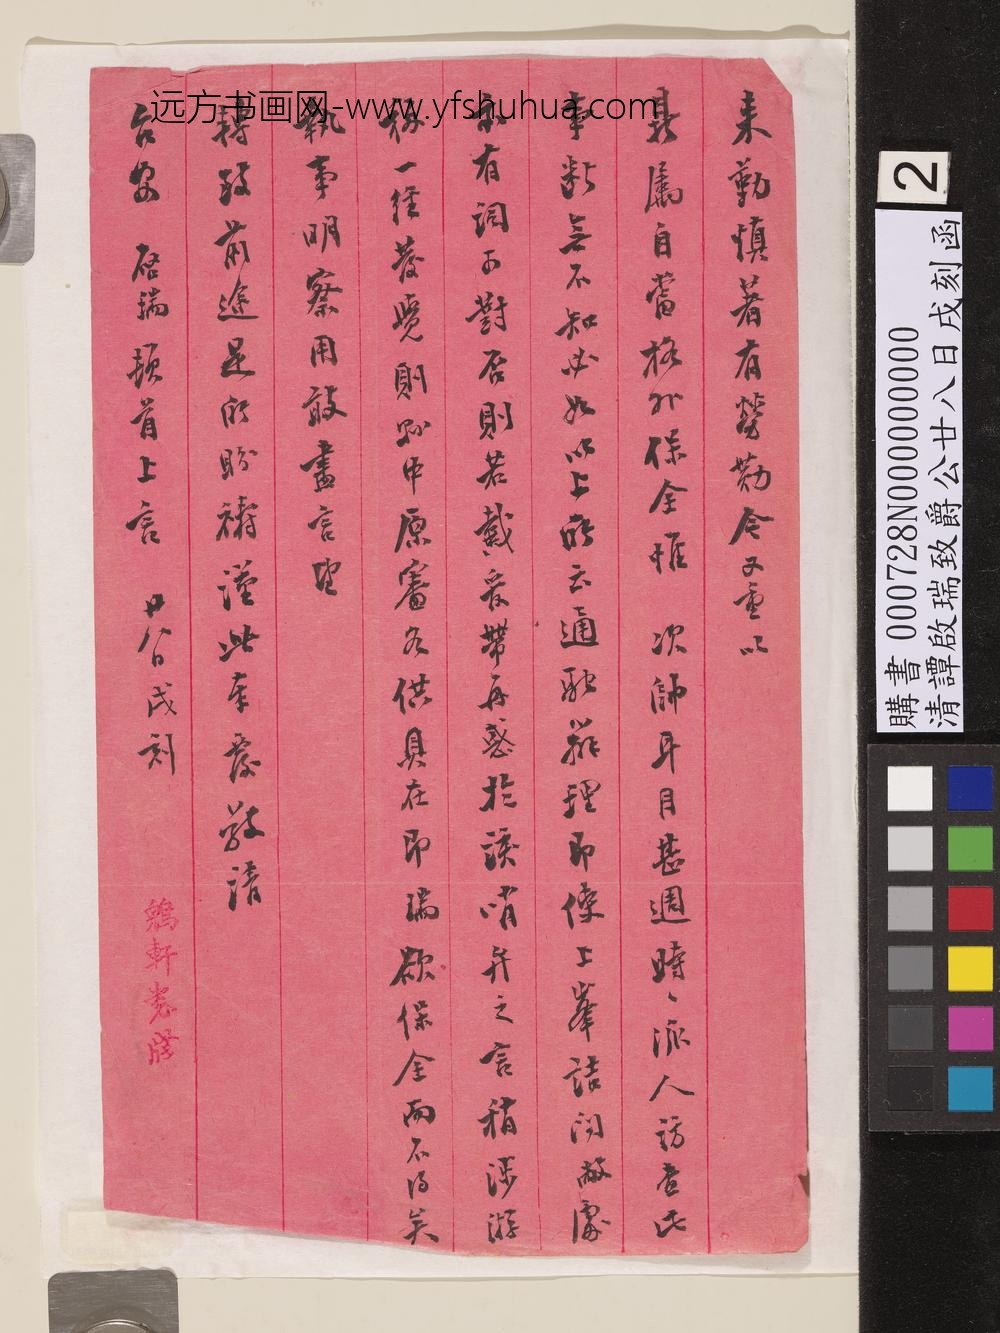 来勤慎著有勞勩令又重以
縣属自當格外保全惟 次帥耳目甚週時〻派人訪查此
事断無不知必如以上所云通融辦理即使上峯詰问敝處
亦有詞可對否則若戴〻爰幣再惑於误哨弁之言稍涉游
移一經發覺則此中原審各供具在即瑞欲保全而不得矣
執事明察用敢盡言望
轉致前途是所盼禱謹此奉覆敬請
台安 啓瑞頓首上言 廿八日戌刻
鶴軒
远方书画网-www.yfshuhua.com
2
購書 000728N000000000
清譚啟瑞致爵公廿八日戌刻函